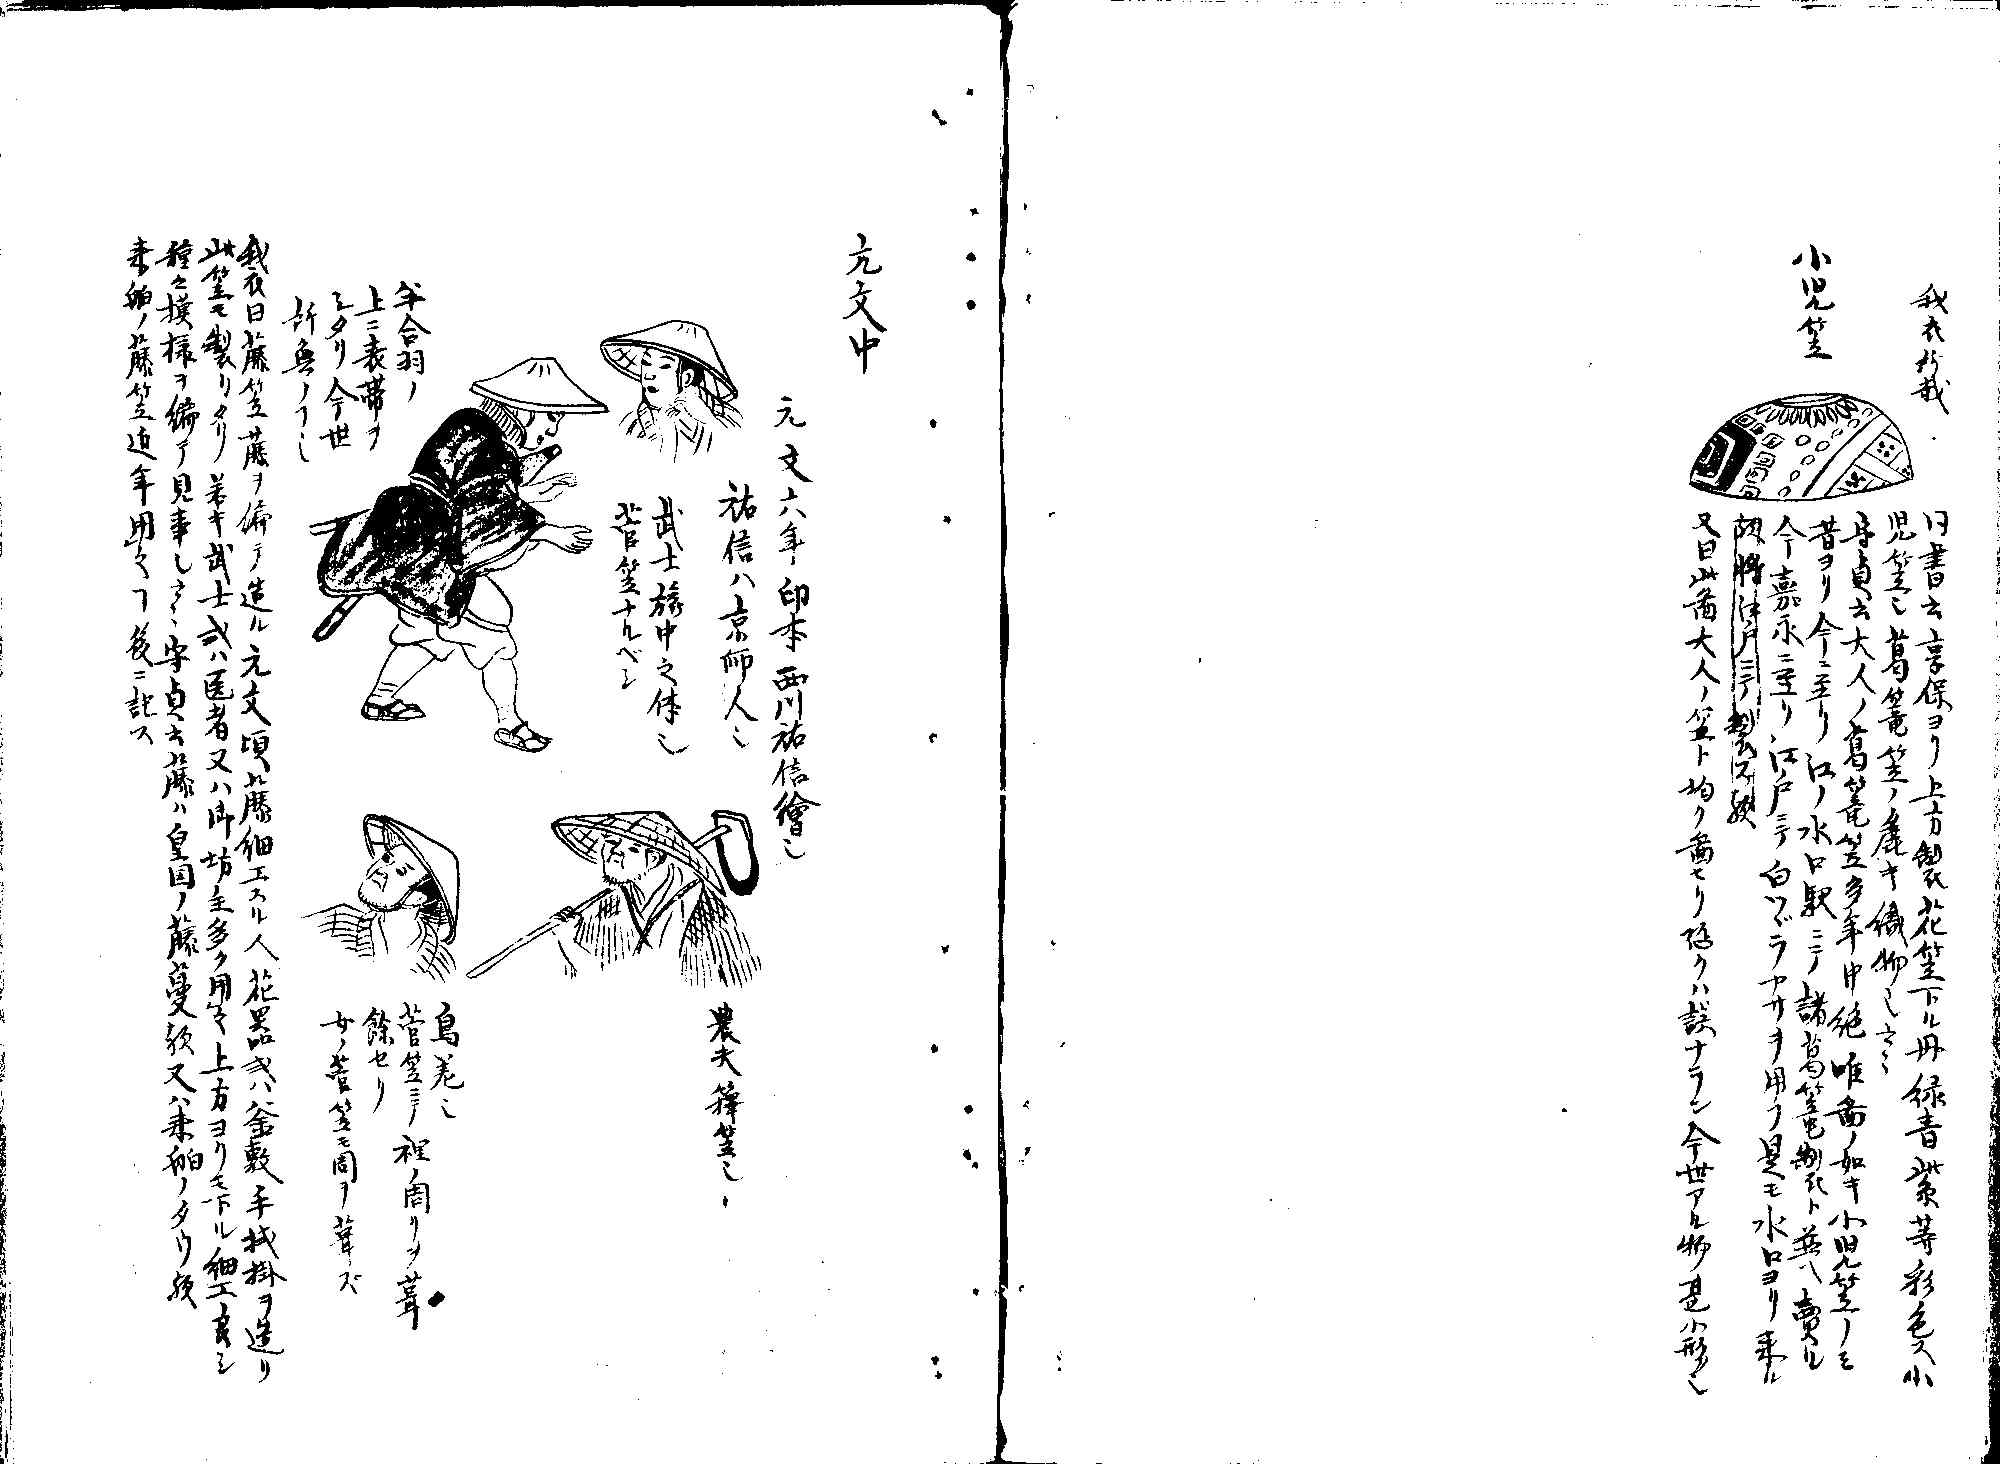 我衣所載
小児笠
同書云享保ヨリ上方製花笠下ル丹緑青紫等彩色ス小
児笠也葛篭笠ノ麁キ織物也云々
守貞云大人ノ葛篭笠多年中絶唯図ノ如キ小児笠ノミ
昔ヨリ今ニ至リ江ノ水口駅ニテ諸葛篭製ト並ヘ売ル
今嘉永ニ至リ江戸ニテ白ツヾラヤサヲ用フ是モ水口ヨリ来ル
江戸ニテ製ス歟
又曰此図大人ノ笠ト均ク図セリ恐クハ誤ナラン今世アル物甚小形也
元文中
元文六年印本西川祐信絵也
祐信ハ京師人也
武士旅中之体也
菅笠ナルベシ
半合羽ノ
上ニ表帯ヲ
シタリ今世
所無ノヿ也
農夫籜笠也
鳥差也
菅笠ニテ裡ノ周リヲ葺
餘セリ
女ノ菅笠モ周ヲ葺ズ
我衣曰藤笠藤ヲ編テ造ル元文頃藤細工スル人花器或ハ釜敷手拭掛ヲ造リ
此笠モ製リタリ若キ武士或ハ医者又ハ御坊主多ク用フ上方ヨリモ下ル細工良シ
種々模様ヲ編テ見事也云々守貞云藤ハ皇国ノ藤蔓歟又ハ来舶ノタウ歟
来舶ノ藤笠迫年用フヿ後ニ記ス